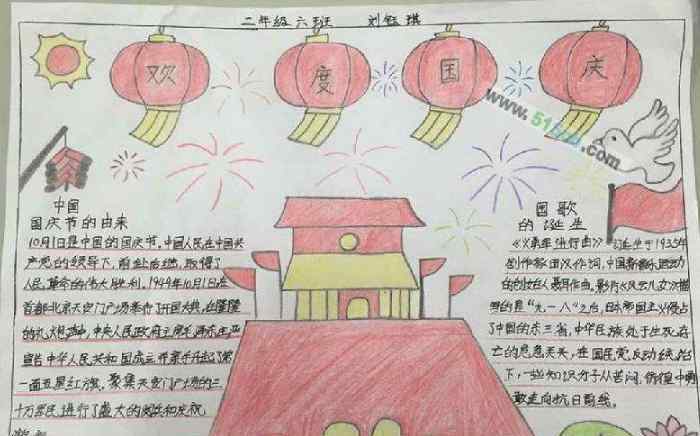 二年级六班 刘钰琪
欢度国庆
www.51
.com
中国
国庆节的由来
10月1日是中国的国庆节,中国人民在中国共
产党的领导下,前赴后继,取得了
人民革命的伟大胜利,1949年10月1日在
首都北京天安门广场举行了开国大典,在隆隆
的礼炮声中,中央人民政府主席毛泽东庄严
宣告中华人民共和国成立并亲手升起了第
一面五星红旗,聚集天安门广场的三
十万军民进行了盛大的阅兵和庆祝
国歌
的诞生
《义勇军进行曲》诞生于1935年
剧作家田汉作词,中国新音乐运动
的创始人聂耳作曲,影片《风云儿女》
的是“九一八”之后,日本帝国主义侵占
了中国的东三省,中华民族处于生死存
亡的危急关头,在国民党反动统治
下,一些知识分子从苦闷、彷徨中勇
敢走向抗日前线。